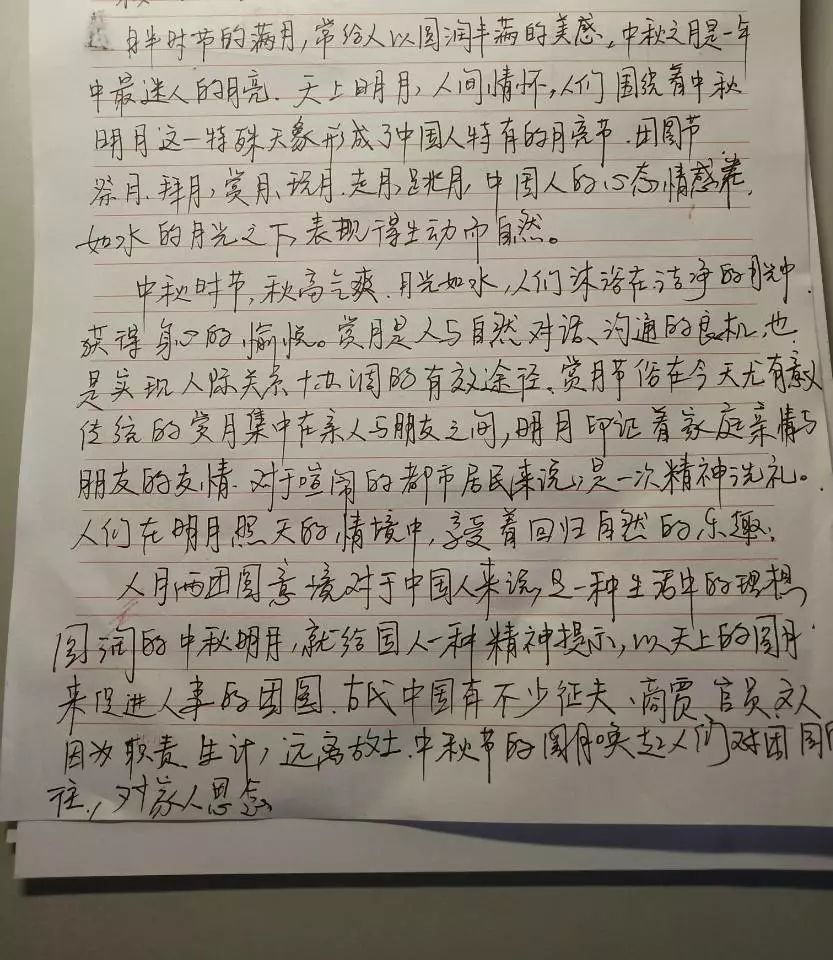 月半时节的满月,常给人以圆润丰满的美感,中秋之月是一年
中最迷人的月亮.天上明月,人间情怀,人们围绕着中秋
明月这一特殊天象形成了中国人特有的月亮节.团圆节
祭月、拜月,赏月、玩月.走月,跳月,中国人的心态情感在
如水的月光之下表现得生动而自然。
中秋时节,秋高气爽.月光如水,人们沐浴在洁净的月光中
获得身心的愉悦。赏月是人与自然对话、沟通的良机,也
是实现人际关系协调的有效途径、赏月节俗在今天尤有意义
传统的赏月集中在亲人与朋友之间,明月印证着家庭亲情与
朋友的友情.对于喧闹的都市居民来说,是一次精神洗礼。
人们在明月照天的情境中,享受着回归自然的乐趣.
人月两团圆意境对于中国人来说,是一种生活中的理想
圆润的中秋明月,就给国人一种精神提示,以天上的圆月
来促进人事的团圆.古代中国有不少征夫、商贾官员文人
因为职责生计,远离故土.中秋节的圆月唤起人们对团圆
往,对家人思念